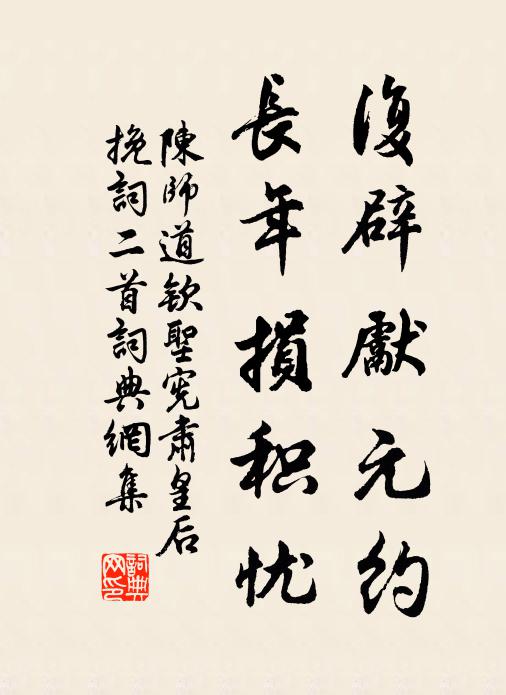 復辟獻元約
長年損积忧
陳師道欽聖宪肅皇后
挽詞二首詞典網集
詞典网印